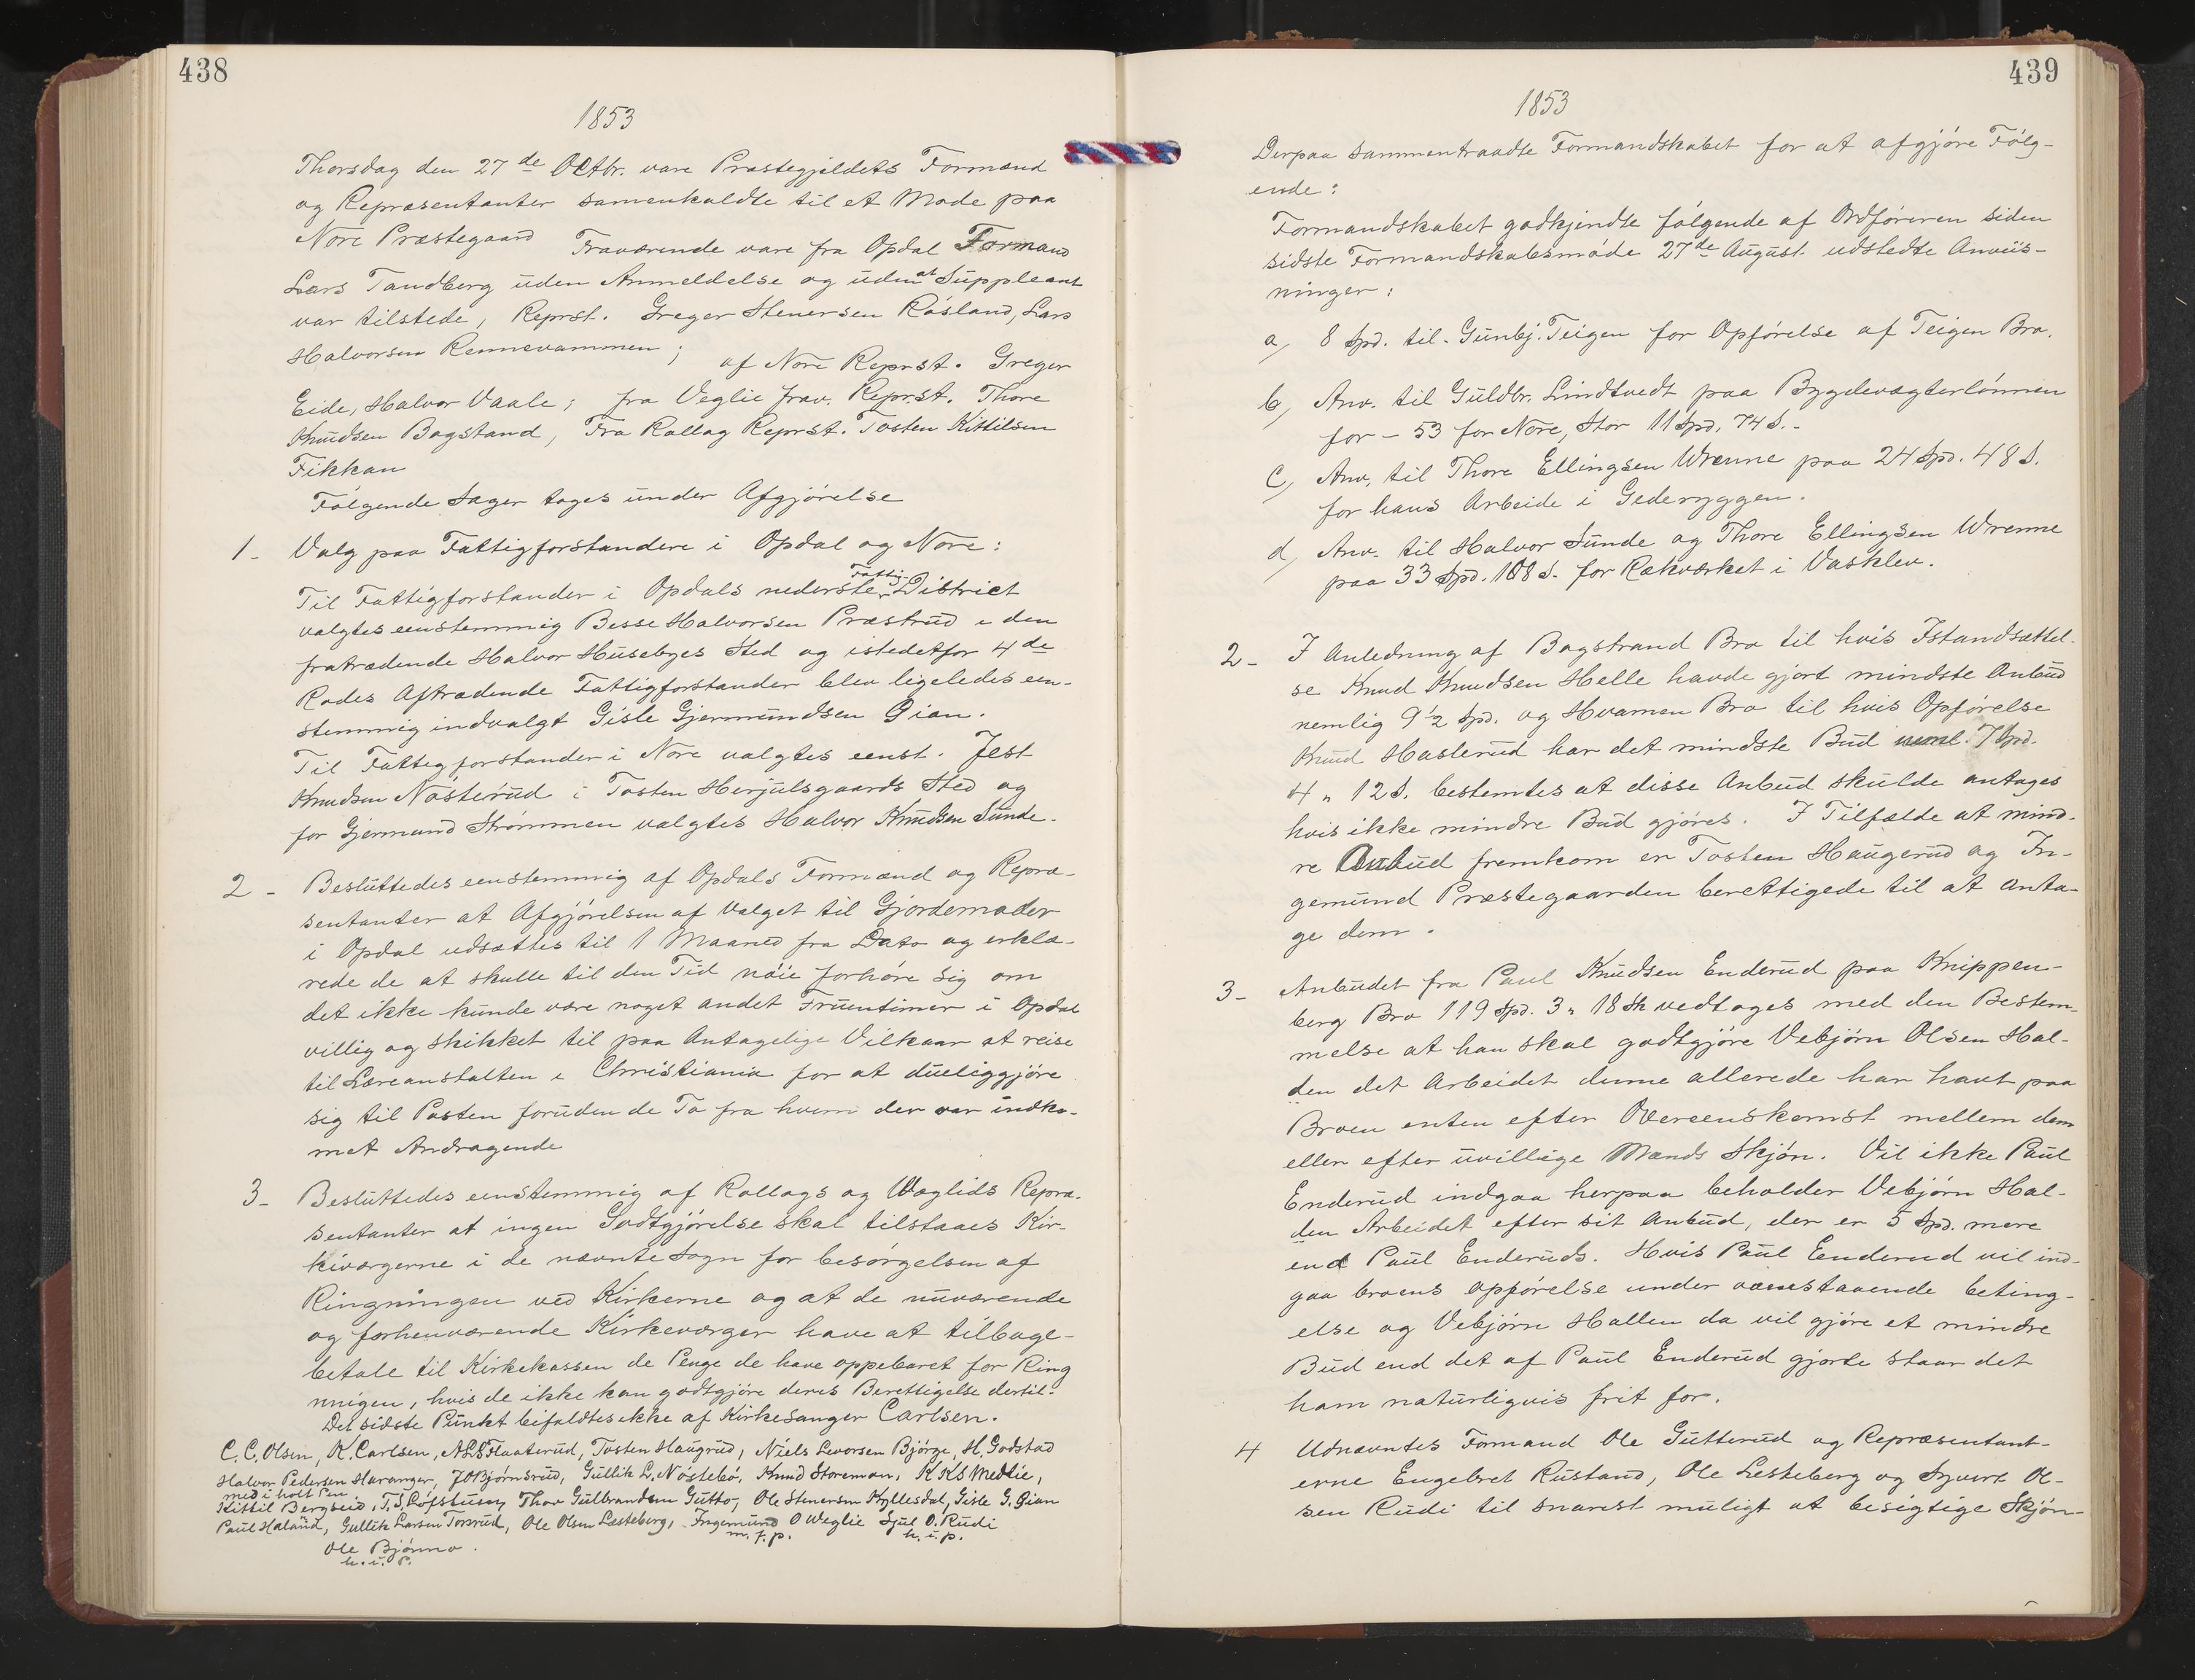 438
1853
Thorsdag den 27de Octbr. vare Præstegjeldets Formænd
og Repræsentanter samenkaldte til et Møde paa
Nore Præstegaard Fraværende vare fra Opdal Formand
Lars Tandberg uden Anmeldelse og uden at Suppleant
var tilstede, Reprst. Greger Stenersen Råsland, Lars
Halvorsen Rennevammen; af Nore Reprst. Greger
Eide, Halvor Vaale; fra Veglie frav. Reprst. Thore
Knudsen Bagstand, Fra Rollag Reprst. Tosten Kittilsen
Fikkan
Følgende Sager toges under Afgjörelse
1- Valg paa Fattigforstandere i Opdal og Nore:
Til Fattigforstander i Opdals nederste Fattig-District
valgtes eenstemmig Besse Halvorsen Præstrud i den
fratrædende Halvor Husebyes Sted og istedetfor 4de
Rodes Aftrædende Fattigforstander blev ligeledes een-
stemmig indvalgt Gisle Gjermundsen Gian.
Til Fattigforstander i Nore valgtes eenst. Jest
Knudsen Nösterud i Tosten Herjulsgaards Sted og
for Gjermund Strømmen valgtes Halvor Knudsen Sunde.
2- Besluttedes eenstemmig af Opdals Formænd og Repræ-
sentanter at Afgjörelsen af Valget til Gjordemoder
i Opdal udsættes til 1 Maaned fra Dato og erklæ-
rede de at skulle til den Tid nöie forhöre sig om
det ikke kunde være noget andet Fruentimer i Opdal
villig og skikket til paa Antagelige Vilkaar at reise
til Læreanstalten i Christiania for at dueliggjöre
sig til Posten foruden de To fra hvem der var indko-
met Andragende
3- Besluttedes eenstemmig af Rollags og Wæglids Repræ-
sentanter at ingen Godtgjörelse skal tilstaaes Kir-
kiværgerne i de nævnte Sogn for besörgelsen af
Ringningen ved Kirkerne og at de nuværende
og forhenværende Kirkeværger have at tilbage-
betale til Kirkekassen de Penge de have oppebaret for Ring
nnigen, hvis de ikke kan godtgjöre deres Berettigelse dertil.
Det sidste Punkt bifaldtes ikke af Kirkesanger Carlsen.
C. C. Olsen, K. Carlsen, A L S Flaaterud, Tosten Haugrud, Niels Levorsen Björge, H. Godstad
Halvor Pedersen Haranger, J O Bjørnsrud, Gullik L. Nöstebö, Knud Storemon, K K S Medlie,
med i holt Pen
Kittil Bergseid, T. S. Löfsteen, Thor Gulbrandsen Gutto, Ole Stenersen Kyllesdal, Gisle G. Gian
Paul Haland, Gullik Larsen Torsrud, Ole Olsen Læsteberg, Ingemund O Weglie Sjul O. Rudi
m. f. p. h. u. p.
Ole Bjönno.
h. u. P.
439
1853
Derpaa sammentraadte Formandskabet for at afgjöre Fölg-
ende:
Formandskabet godkjendte fölgende af Ordföreren siden
sidste Formandskabsmöde 27de August udstedte Anviis-
ninger:
a, 8 Spd. til Gunbj. Teigen for Opförelse af Teigen Bro.
b, Anv. til Guldbr. Lindtvedt paa Bygdevægterlönnen
for - 53 for Nore, Stor 11 Spd. 74 S.-
c, Anv. til Thore Ellingsen Wrenne paa 24 Spd. 48 S.
for hans Arbeide i Gederyggen.
d, Anv. til Halvor Sunde og Thore Ellingsen Wrenne
paa 33 Spd. 108 S. for Rækværket i Vasklev.
2- I Anledning af Bagstrand Bro til hvis Istandsættel-
se Knud Knudsen Helle havde gjort mindste Anbud
nemlig 9½ Spd. og Hvamen Bro til hvis Opförelse
Knud Haslerud har det mindste Bud neml. 7 Spd.
4 " 12 S. bestemtes at disse Anbud skulde antages
hvis ikke mindre Bud gjöres. I Tilfælde at mind-
re Anbud fremkom er Tosten Haugerud og In-
gemund Præstegaarden berettigede til at anta-
ge dem.
3- Anbudet fra Paul Knudsen Enderud paa Knippen-
berg Bro 119 Spd. 3 " 18 Sk vedtoges med den Bestem-
melse at han skal godtgjöre Vebjörn Olsen Hal-
den det Arbeidet denne allerede har havt paa
Broen enten efter Overeenskomst mellem dem
eller efter uvillige Mænds Skjön. Vil ikke Paul
Enderud indgaa herpaa beholder Vebjörn Hal-
den Arbeidet efter sit Anbud, der er 5 Spd. mere
end Paul Enderuds. Hvis Paul Eenderud vil ind-
gaa broens opförelse under ovenstaaende beting-
else og Vebjörn Hallen da vil gjöre et mindre
Bud end det af Paul Enderud gjorte staar det
ham naturligvis frit for.
4 Udnævntes Formand Ole Gutterud og Repræsentant-
erne Engebret Rustand, Ole Lesteberg og Syvert Ol-
sen Rudi til snarest muligt at besigtige Skjön-